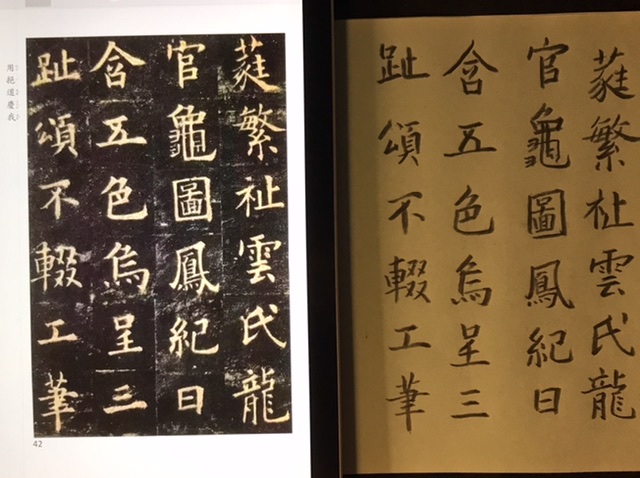 蕤繁祉雲氏龍
官龜圖鳳紀日
含五色烏呈三
趾頌不輟工筆
用挹道慶我
42
蕤繁祉雲氏龍
官龜圖鳳紀日
含五色烏呈三
趾頌不輟工筆